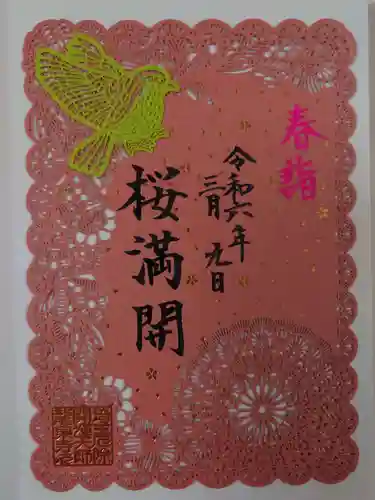 春詣
令和六年
三月九日
桜満開